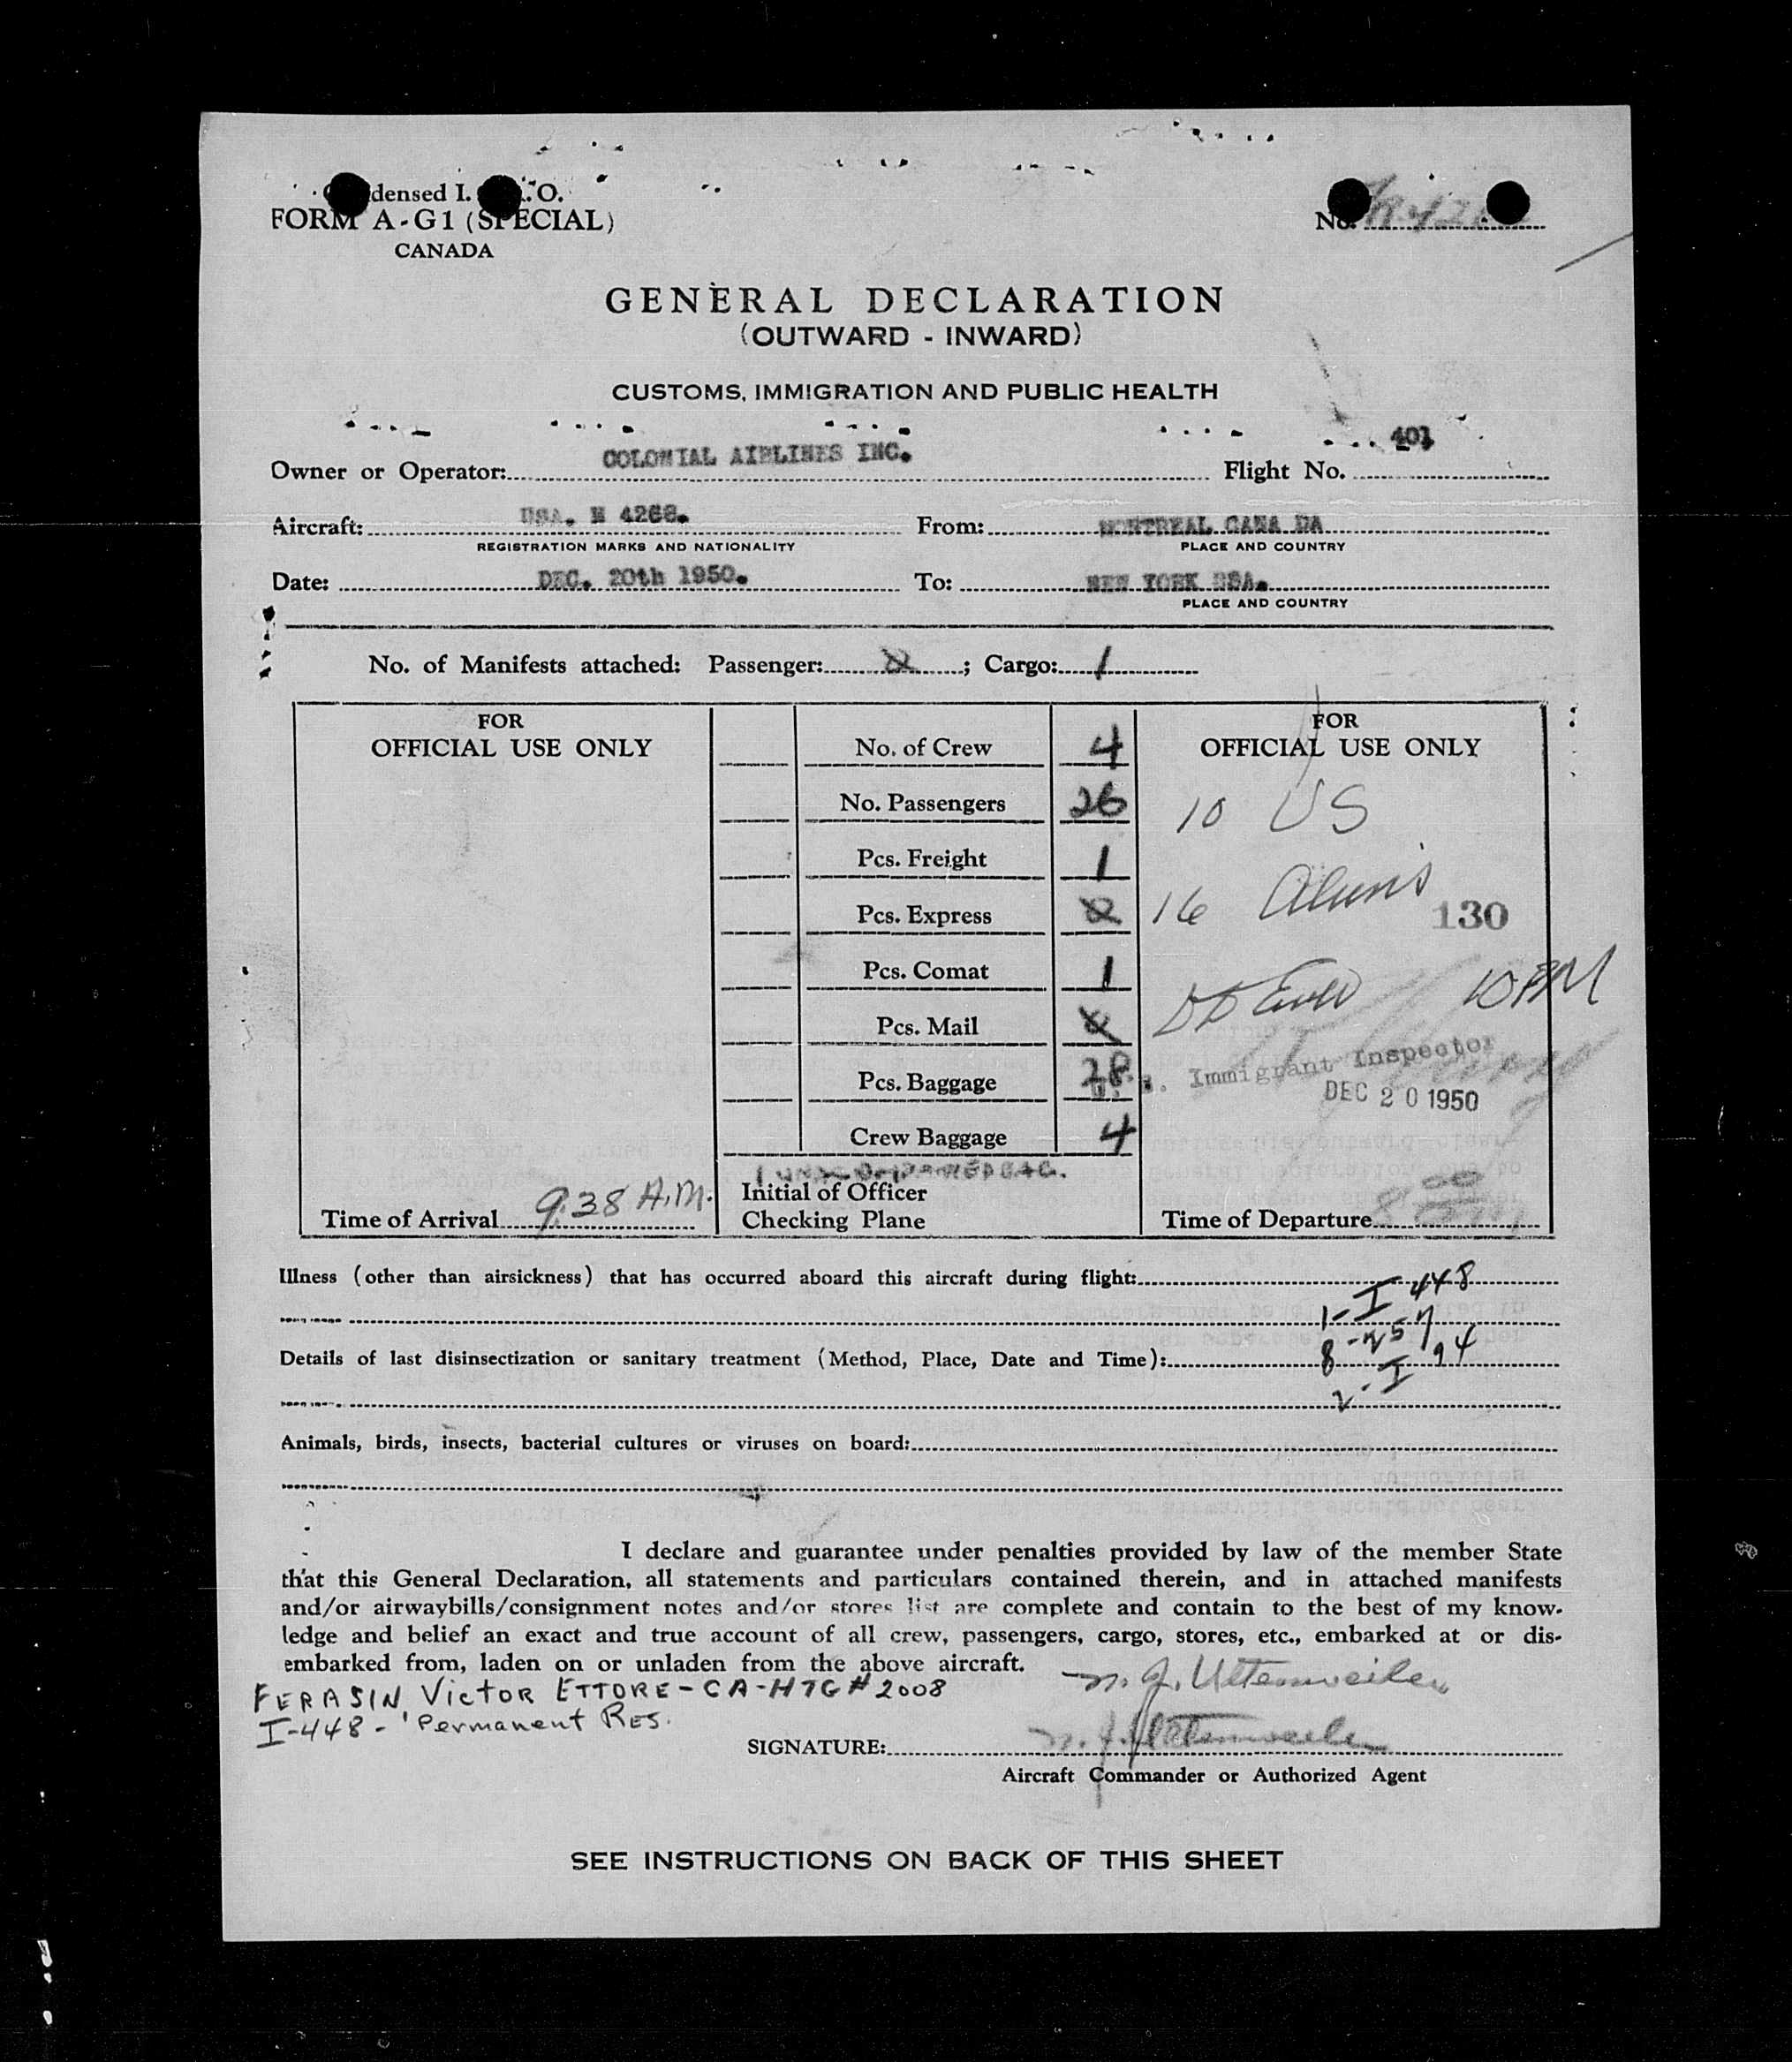 densed I. .O.
FORM A-G1 (SPECIAL)
CANADA
No.
GENERAL DECLARATION
(OUTWARD - INWARD)
CUSTOMS, IMMIGRATION AND PUBLIC HEALTH
Owner or Operator: COLONIAL AIRLINES INC. Flight No. 401
Aircraft: USA. N 4268. From: MONTREAL CANA DA
REGISTRATION MARKS AND NATIONALITY PLACE AND COUNTRY
Date: DEC. 20th 1950. To: NEW YORK USA.
PLACE AND COUNTRY
No. of Manifests attached: Passenger: ; Cargo: 1
FOR
OFFICIAL USE ONLY
No. of Crew 4
No. Passengers 26
Pcs. Freight 1
Pcs. Express
Pcs. Comat 1
Pcs. Mail
Pcs. Baggage 28
Crew Baggage 4
FOR
OFFICIAL USE ONLY
10 US
16 Aliens
130
10 PM
Immigrant Inspector
DEC 20 1950
Time of Arrival 9:38 A.M.
Initial of Officer
Checking Plane
Time of Departure
Illness (other than airsickness) that has occurred aboard this aircraft during flight:
1-I 448
8-257
Details of last disinsectization or sanitary treatment (Method, Place, Date and Time):
2-I 94
Animals, birds, insects, bacterial cultures or viruses on board:
I declare and guarantee under penalties provided by law of the member State
that this General Declaration, all statements and particulars contained therein, and in attached manifests
and/or airwaybills/consignment notes and/or stores list are complete and contain to the best of my know-
ledge and belief an exact and true account of all crew, passengers, cargo, stores, etc., embarked at or dis-
embarked from, laden on or unladen from the above aircraft.
FERASIN, Victor ETTORE-CA-HTG# 2008
I-448-'Permanent Res.
SIGNATURE:
Aircraft Commander or Authorized Agent
SEE INSTRUCTIONS ON BACK OF THIS SHEET